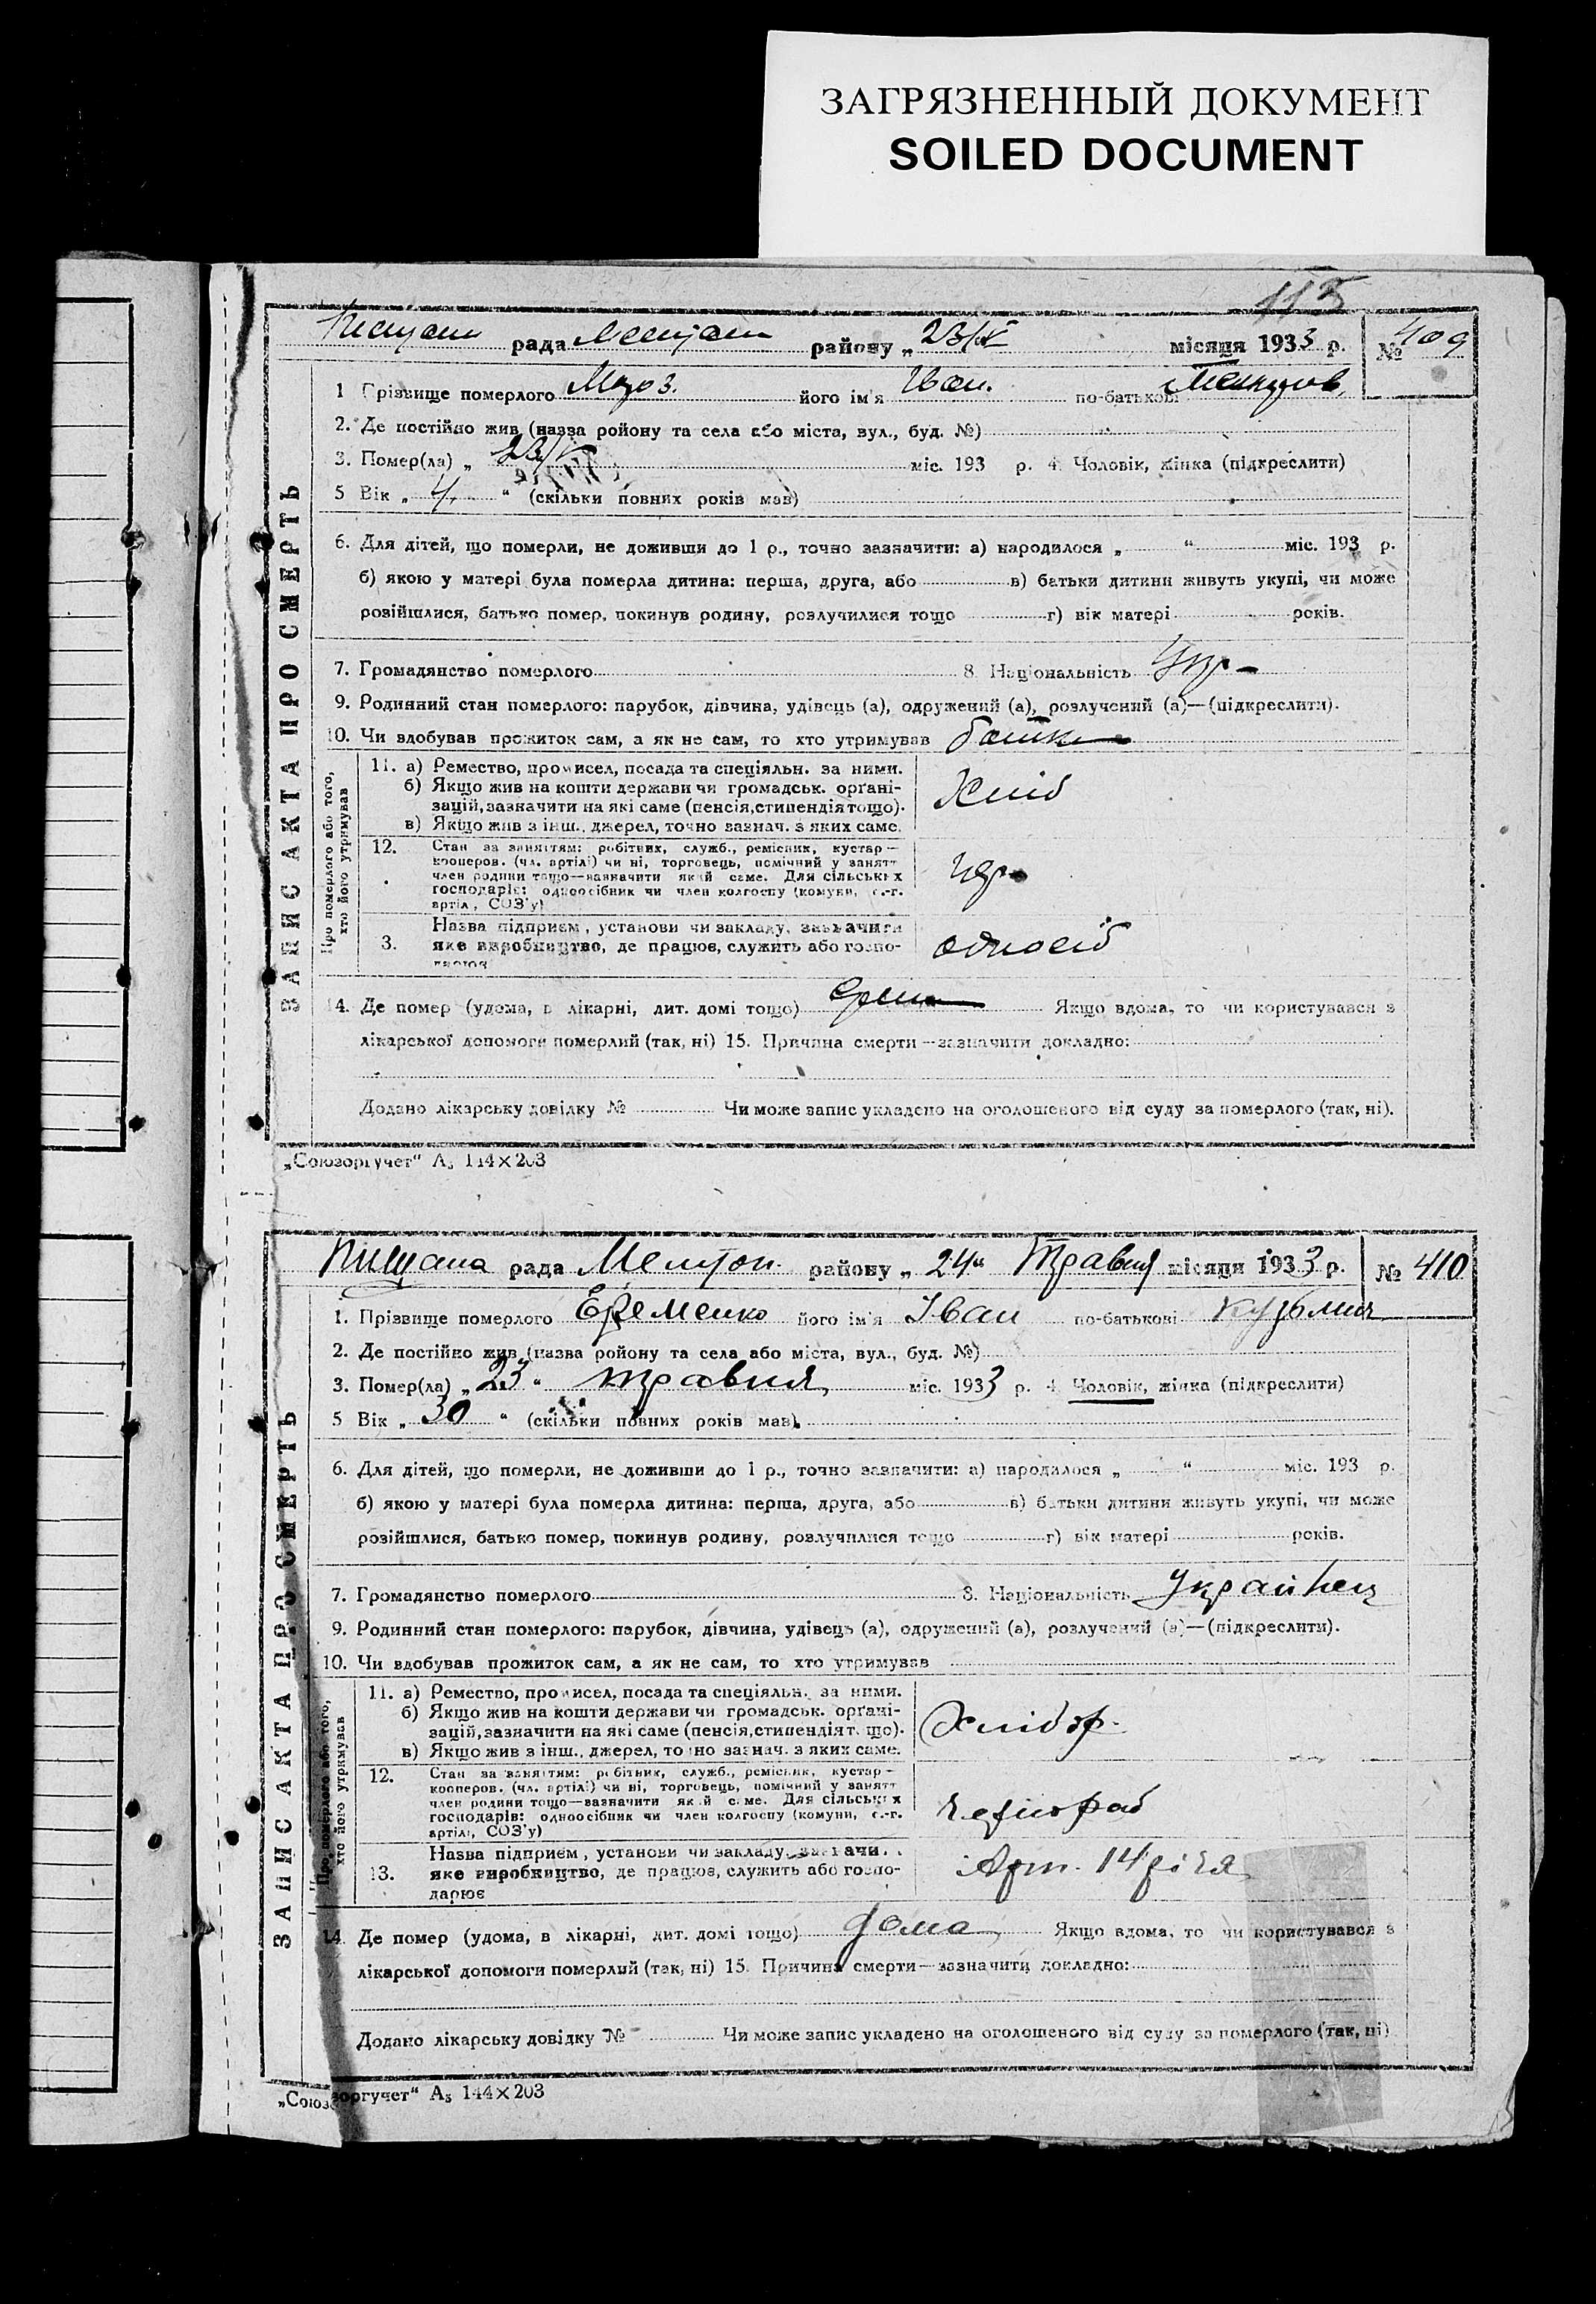 ЗАГРЯЗНЕННЫЙ ДОКУМЕНТ
SOILED DOCUMENT
113
рада районy „23/V місяця 1933 р. № 409
1 Прізвище померлого Мороз. його ім'я Іван. по-батькові
2. Де постійно жив (назва ройону та села або міста, вул., буд. №)
3. Помер(ла) „ 23/V міс. 193 р. 4. Чоловік, жінка (підкреслити)
5 Вік „ 4. “ (скільки повних років мав)
6. Для дітей, що померли, не доживши до 1 р., точно зазначити: а) народилося „ “ міс. 193 р.
б) якою у матері була померла дитина: перша, друга, або в) батьки дитини живуть укупі, чи може
розійшлися, батько помер, покинув родину, розлучилися тощо г) вік матері років.
7. Громадянство померлого 8. Національність Укр
9. Родинний стан померлого: парубок, дівчина, удівець (а), одружений (а), розлучений (а)—(підкреслити).
10. Чи здобував прожиток сам, а як не сам, то хто утримував батьки
ЗАПИС АКТА ПРО СМЕРТЬ
Про померлого або того, хто його утримував
11. а) Ремество, промисел, посада та спеціяльн. за ними.
б) Якщо жив на кошти держави чи громадськ. органі-
зацій, зазначити на які саме (пенсія, стипендія тощо).
в) Якщо жив з інш., джерел, точно зазнач. з яких саме.
Хліб
12. Стан за заняттям: робітник, служб., ремісник, кустар—
кооперов. (чл. артілі) чи ні, торговець, помічний у занятт
член родини тощо—зазначити який саме. Для сільських
господарів: одноосібник чи член колгоспу (комуни, с.-г.
артіл, СОЗ'у)
13. Назва підприєм, установи чи закладу, зазначити
яке виробництво, де працює, служить або госпо-
дарює
односіб
14. Де помер (удома, в лікарні, дит. домі тощо) Якщо вдома, то чи користувався з
лікарської допомоги померлий (так, ні) 15. Причина смерти—зазначити докладно:
Додано лікарську довідку № Чи може запис укладено на оголошеного від суду за померлого (так, ні).
„Союзоргучет“ А₅ 144×203
Пищана рада Мелітоп. району „ 24 “ Травня місяця 1933 р. № 410
1. Прізвище померлого Еременко його ім'я Іван по-батькові Кузьмич
2. Де постійно жив (назва ройону та села або міста, вул., буд. №)
3. Помер(ла) „ 23 “ травня міс. 1933 р. 4. Чоловік, жінка (підкреслити)
5 Вік „ 30 “ (скільки повних років мав)
6. Для дітей, що померли, не доживши до 1 р., точно зазначити: а) народилося „ “ міс. 193 р.
б) якою у матері була померла дитина: перша, друга, або в) батьки дитини живуть укупі, чи може
розійшлися, батько помер, покинув родину, розлучилися тощо г) вік матері років.
7. Громадянство померлого 8. Національність Украйнец
9. Родинний стан померлого: парубок, дівчина, удівець (а), одружений (а), розлучений (а)—(підкреслити).
10. Чи здобував прожиток сам, а як не сам, то хто утримував
ЗАПИС АКТА ПРО СМЕРТЬ
Про померлого або того, хто його утримував
11. а) Ремество, промисел, посада та спеціяльн. за ними.
б) Якщо жив на кошти держави чи громадськ. органі-
зацій, зазначити на які саме (пенсія, стипендія т. що).
в) Якщо жив з інш., джерел, точно зазнач. з яких саме.
Хлібор.
12. Стан за заняттям: робітник, служб., ремісник, кустар—
кооперов. (чл. артілі) чи ні, торговець, помічний у занятт
член родини тощо—зазначити який саме. Для сільських
господарів: одноосібник чи член колгоспу (комуни, с.-г.
артіл, СОЗ'у)
13. Назва підприєм, установи чи закладу, зазначи
яке виробництво, де працює, служить або госпо-
дарює
Арт. 14 річя
14. Де помер (удома, в лікарні, дит. домі тощо) дома Якщо вдома, то чи користувався з
лікарської допомоги померлий (так, ні) 15. Причина смерти—зазначити докладно:
Додано лікарську довідку № Чи може запис укладено на оголошеного від суду за померлого (так, ні)
„Союзоргучет“ А₅ 144×203